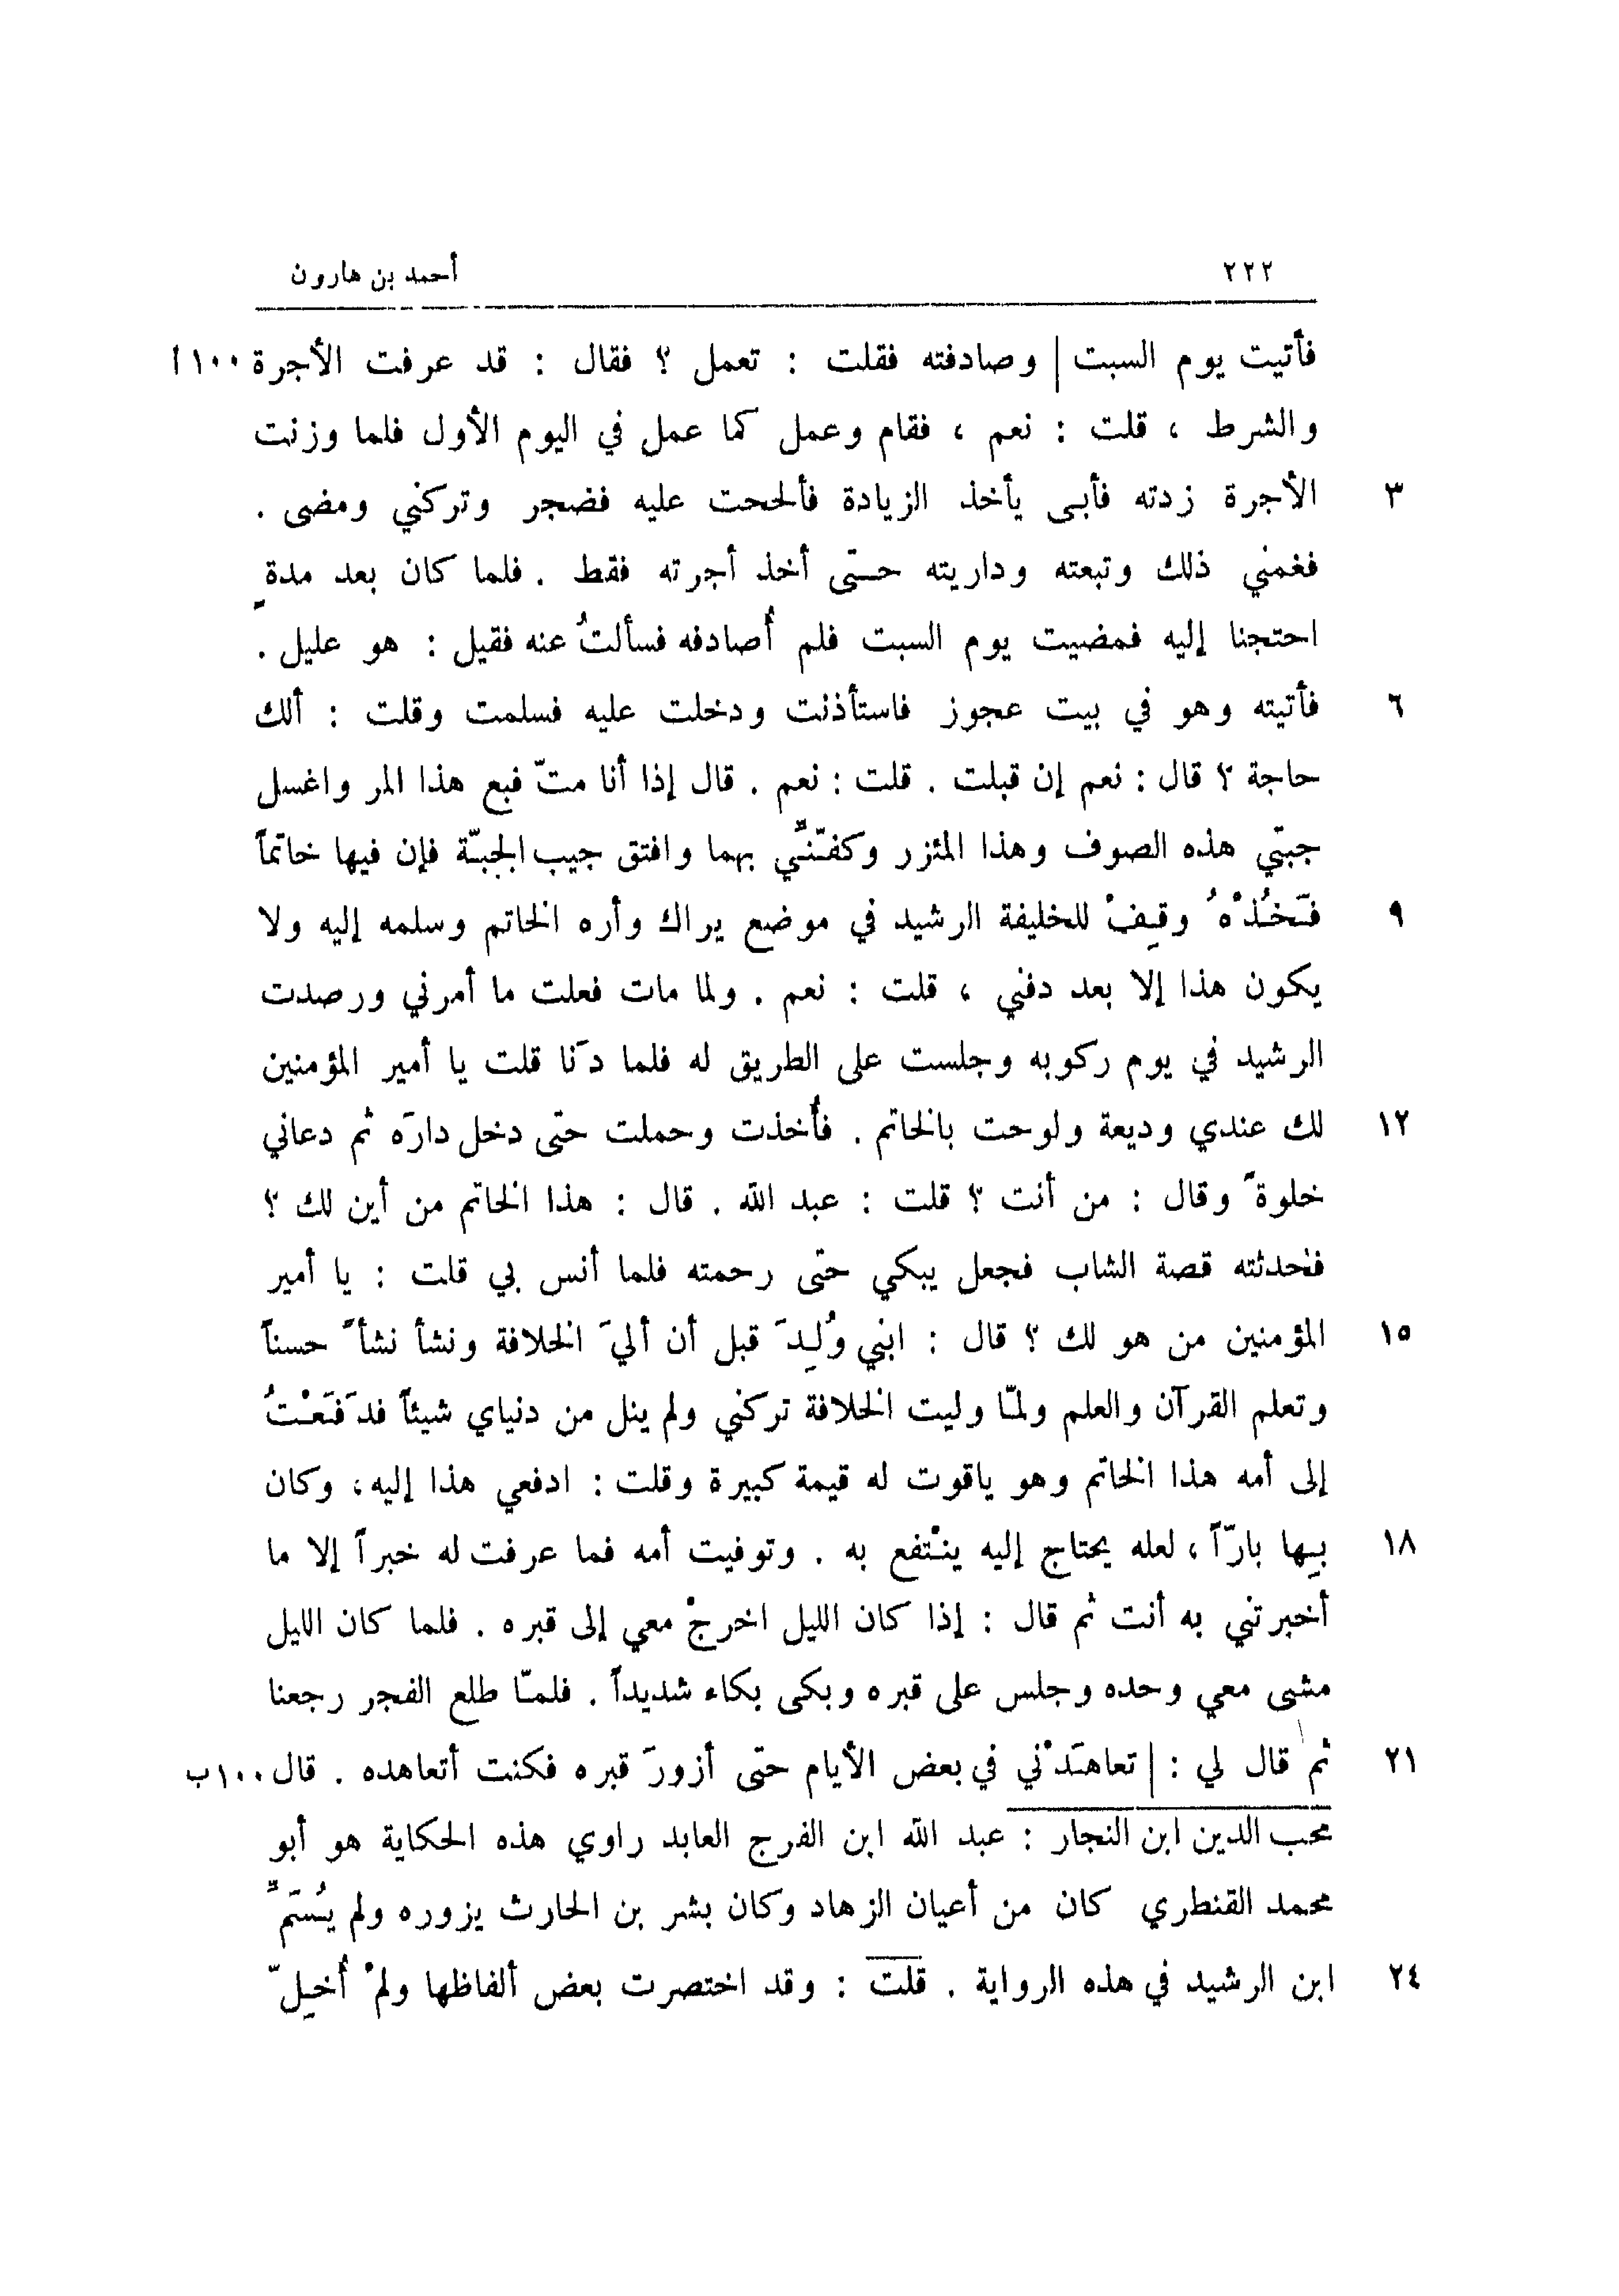 ٢٢٢ أحمد بن هارون
فأتيت يوم السبت | وصادفته فقلت : تعمل ؟ فقال : قد عرفت الأجرة ١٠٠ا
والشرط ، قلت : نعم ، فقام وعمل كما عمل في اليوم الأول فلما وزنت
٣ الأجرة زدته فأبى يأخذ الزيادة فألححت عليه فضجر وتركني ومضى .
فغمني ذلك وتبعته وداريته حتّى أخذ أجرته فقط . فلما كان بعد مدةٍ
احتجنا إليه فمضيت يوم السبت فلم أُصادفه فسألتُ عنه فقيل : هو عليل .
٦ فأتيته وهو في بيت عجوز فاستأذنت ودخلت عليه فسلمت وقلت : ألك
حاجة ؟ قال : نعم إن قبلت . قلت : نعم . قال إذا أنا متّ فبع هذا المر واغسل
جبتّي هذه الصوف وهذا المئزر وكفّنِّي بهما وافتق جيب الجبّة فإن فيها خاتماً
٩ فَخُذْهُ وقِفْ للخليفة الرشيد في موضع يراك وأره الخاتم وسلمه إليه ولا
يكون هذا إلا بعد دفني ، قلت : نعم . ولما مات فعلت ما أمرني ورصدت
الرشيد في يوم ركوبه وجلست على الطريق له فلما دَنا قلت يا أمير المؤمنين
١٢ لك عندي وديعة ولوحت بالخاتم . فأُخذت وحملت حتّى دخل دارَه ثم دعاني
خلوةً وقال : من أنت ؟ قلت : عبد الله . قال : هذا الخاتم من أين لك ؟
فحدثته قصة الشاب فجعل يبكي حتّى رحمته فلما أنس بي قلت : يا أمير
١٥ المؤمنين من هو لك ؟ قال : ابني وُلِدَ قبل أن أليَ الخلافة ونشأ نشأً حسناً
وتعلم القرآن والعلم ولمّا وليت الخلافة تركني ولم ينل من دنياي شيئاً فدَفَعْتُ
إلى أمه هذا الخاتم وهو ياقوت له قيمة كبيرة وقلت : ادفعي هذا إليه، وكان
١٨ بِها بارّاً ، لعله يحتاج إليه ينْتفع به . وتوفيت أمه فما عرفت له خبراً إلا ما
أخبرتني به أنت ثم قال : إذا كان الليل اخرجْ معي إلى قبره . فلما كان الليل
مشى معي وحده وجلس على قبره وبكى بكاء شديداً . فلمّا طلع الفجر رجعنا
٢١ ثم قال لي : | تعاهَدْني في بعض الأيام حتّى أزورَ قبره فكنت أتعاهده . قال ١٠٠ب
محب الدين ابن النجار : عبد الله ابن الفرج العابد راوي هذه الحكاية هو أبو
محمد القنطري كان من أعيان الزهاد وكان بشر بن الحارث يزوره ولم يُسَمِّ
٢٤ ابن الرشيد في هذه الرواية . قلت : وقد اختصرت بعض ألفاظها ولمْ أُخِلّ